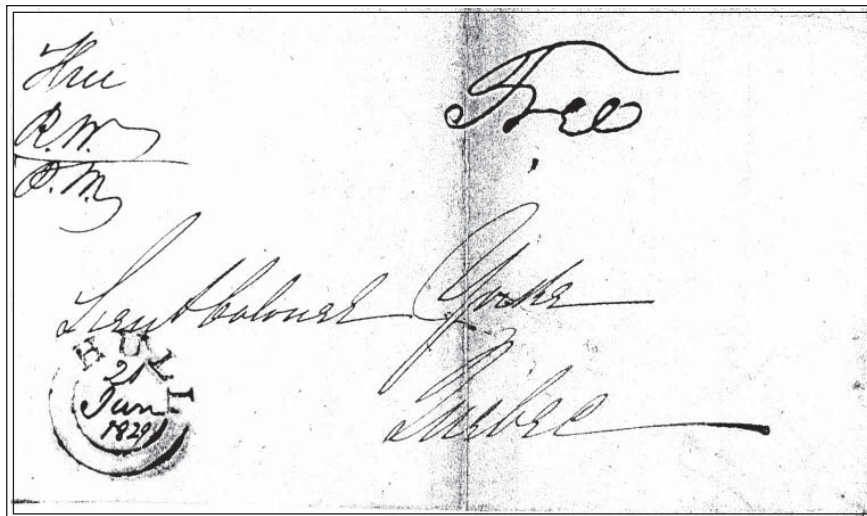 Free
R.W.
P.M.
Free
Lieut Colonel Yorke
Quebec
HULL
21
Jun
1829